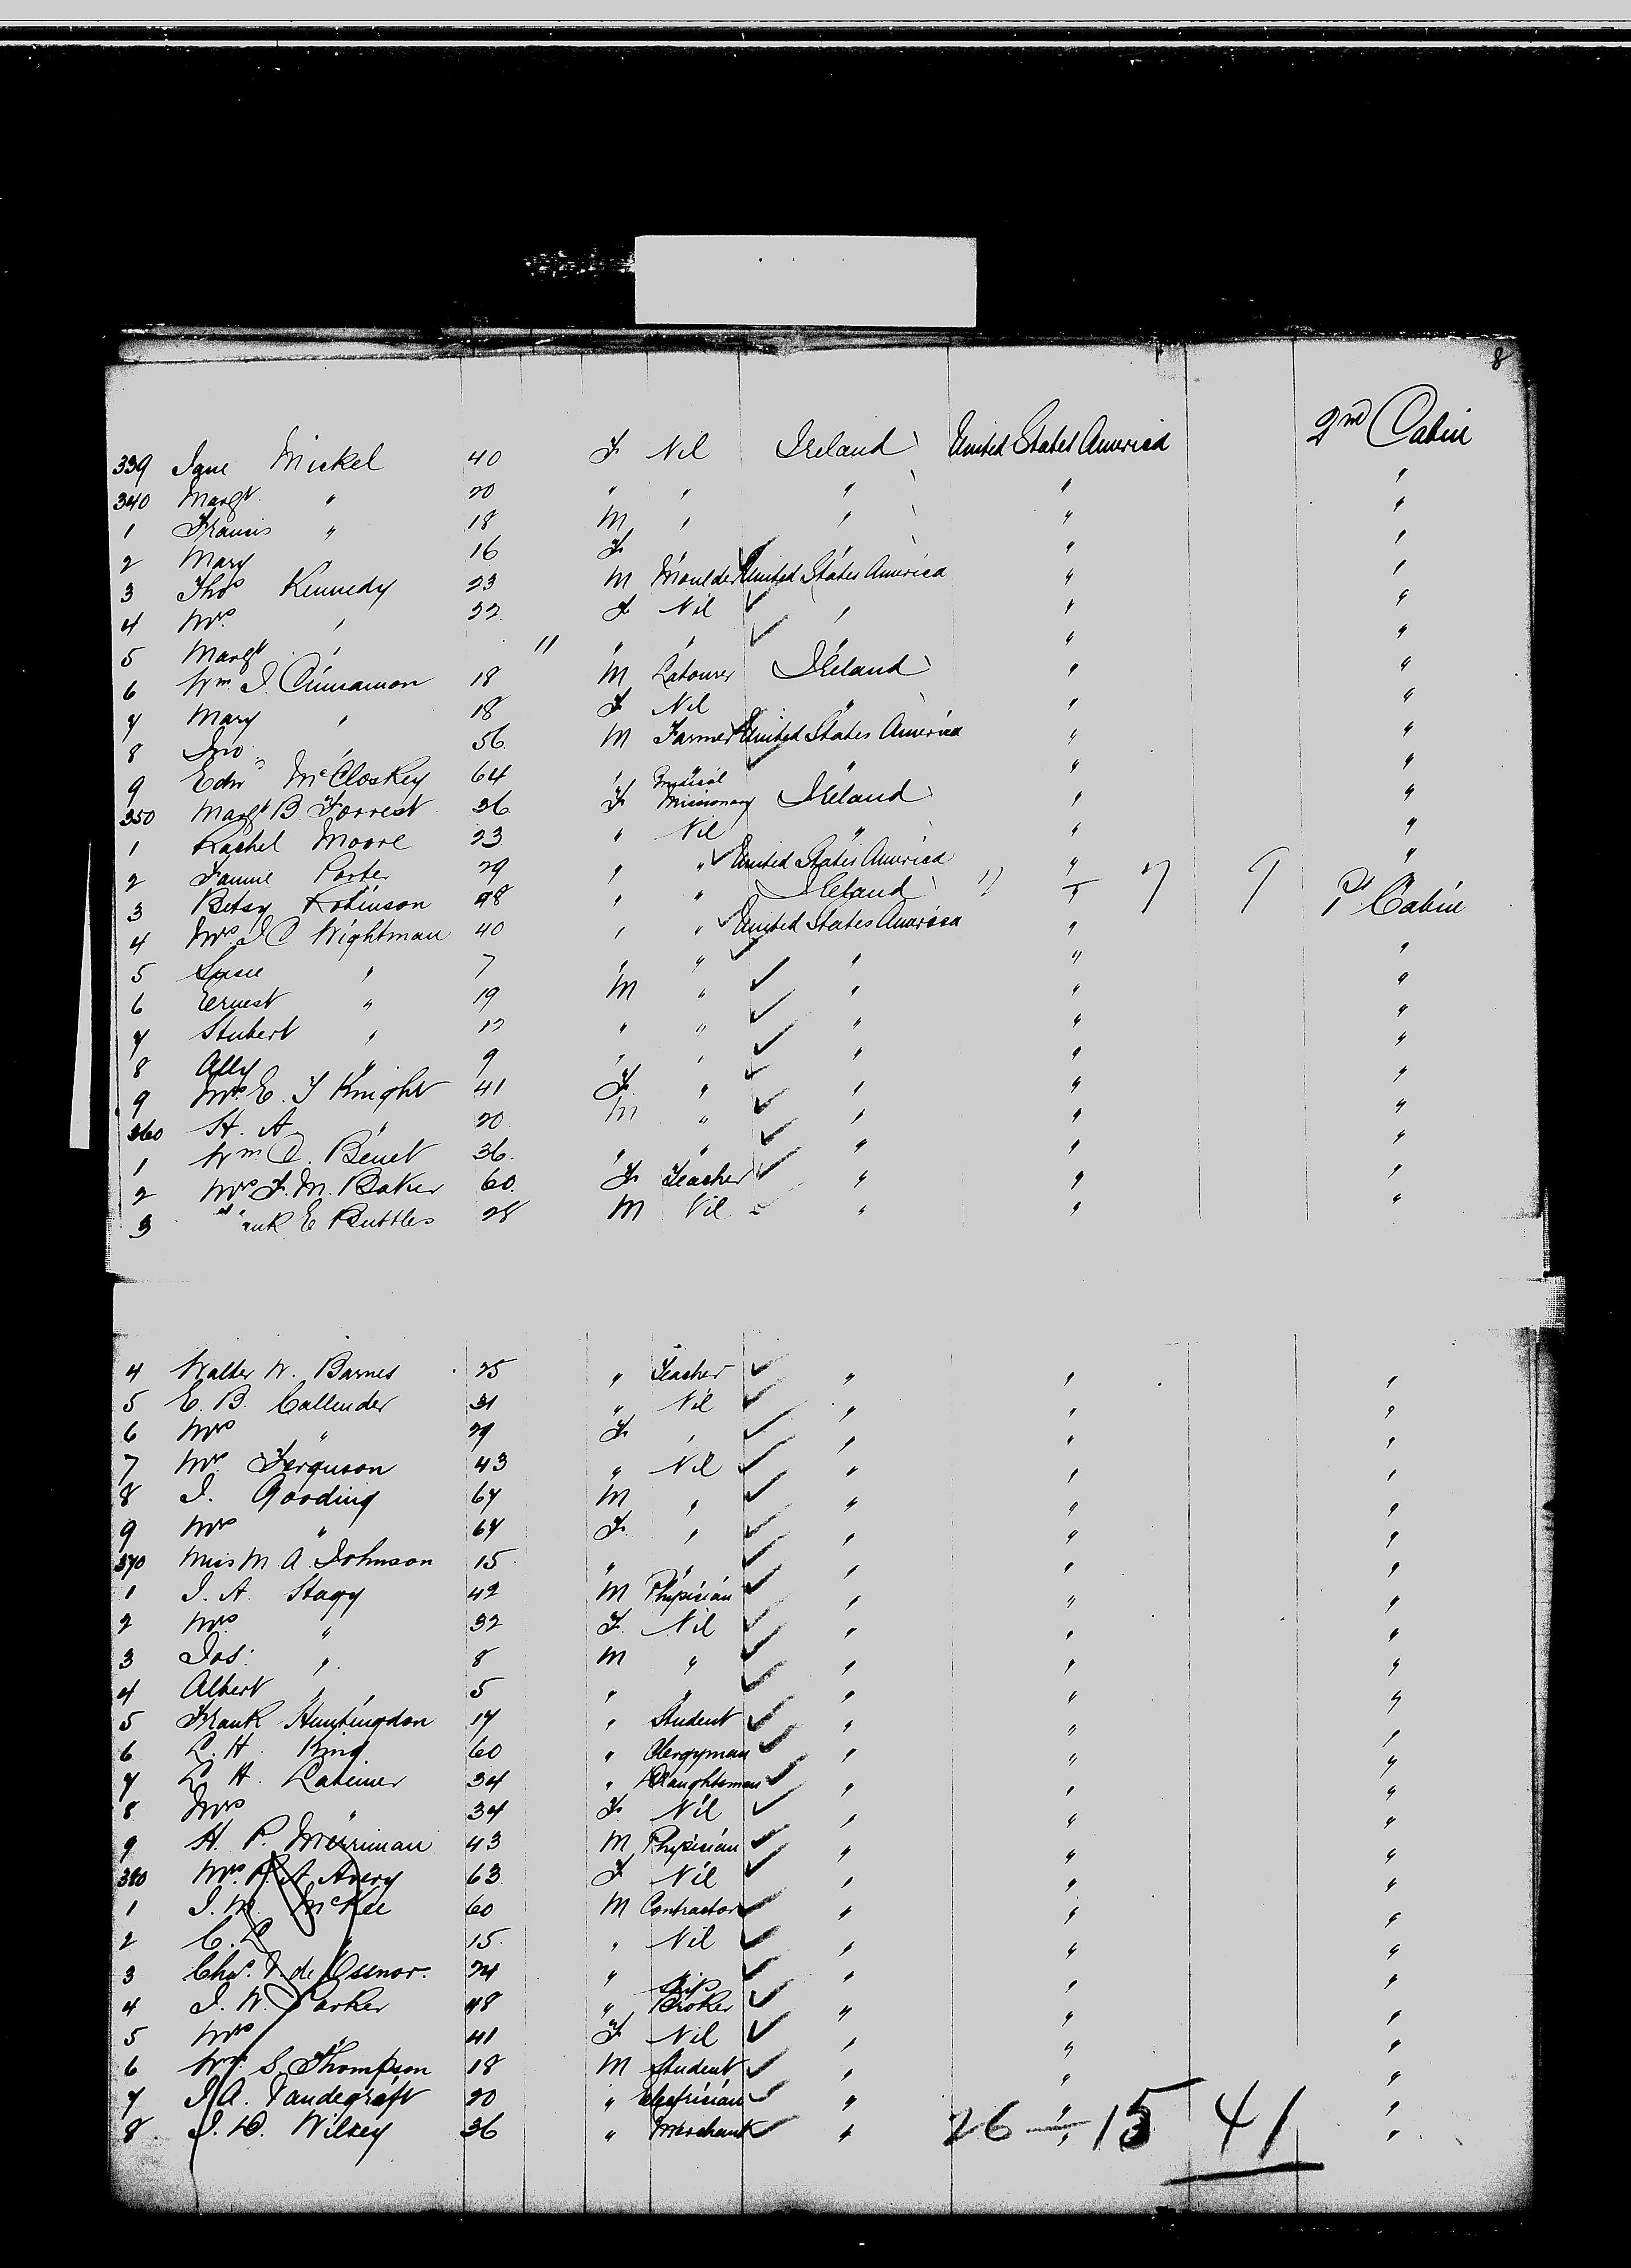 8
339 Jane Mickel 40 F Nil Ireland United States America 2nd Cabin
340 Margt " 20 " " " " "
1 Francis " 18 M " " " "
2 Mary 16 F " "
3 Thos Kennedy 23 M Moulder United States America " "
4 Mrs " 22 F Nil " " "
5 Margt " 11 " " " " "
6 Wm J. Cinnamon 18 M Labourer Ireland " "
7 Mary " 18 F Nil " " "
8 Jno " 56 M Farmer United States America " "
9 Edw McCloskey 64 " " " " "
350 Margt B. Forrest 36 F Medical Missionary Ireland " "
1 Rachel Moore 23 " Nil " " "
2 Fannie Porter 29 " " United States America " "
3 Betsy Robinson 48 " " Ireland " "
4 Mrs J C Wightman 40 " " United States America " 1st Cabin
5 Susie " 7 " " " " "
6 Ernest " 19 M " " " "
7 Stubert " 12 " " " " "
8 Ally " 9 " " " " "
9 Mrs E. J Knight 41 F " " " "
360 H. A. " 20 M " " " "
1 Wm C. Benet 36 " " " " "
2 Mrs F. M. Baker 60 F Teacher " " "
3 E Buttles 28 M Nil " " "
4 Walter W. Barnes 25 " Teacher " " "
5 E. B. Callender 31 " Nil " " "
6 Mrs " 29 F " " " "
7 Mrs Ferguson 43 " Nil " " "
8 J. Gooding 67 M " " " "
9 Mrs " 67 F " " " "
370 Miss M. A. Johnson 15 " " " " "
1 J. A. Stagg 42 M Physician " " "
2 Mrs " 32 F Nil " " "
3 Jos. " 8 M " " " "
4 Albert " 5 " " " " "
5 Frank Huntingdon 17 " Student " " "
6 L. H. King 60 " Clergyman " " "
7 L H. Latimer 34 " Draughtsman " " "
8 Mrs " 34 F Nil " " "
9 H. P. Merriman 43 M Physician " " "
380 Mrs A. Avery 63 F Nil " " "
1 J. M. McKee 60 M Contractor " " "
2 C. L " 15 " Nil " " "
3 Chas. de Osenor 24 " " " " "
4 J. W. Parker 48 " Ship Broker " " "
5 Mrs " 41 F Nil " " "
6 S. Thompson 18 M Student " " "
7 J A. Vandegraft 20 " Electrician " " "
8 J. D. Wilsey 36 " Merchant " " "
26 — 15 41